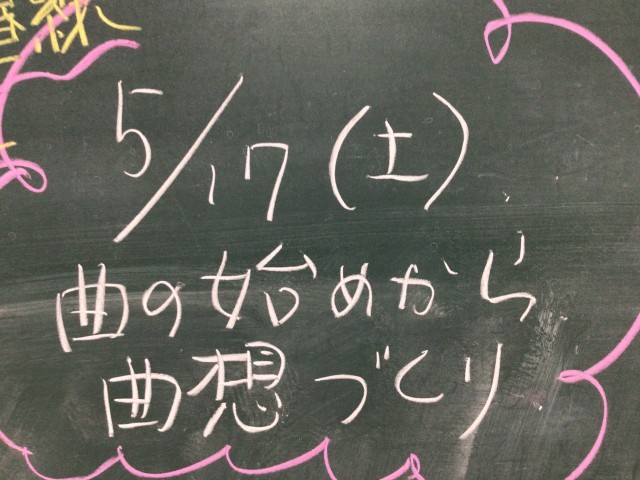 5/17(土)
曲の始めから
曲想づくり